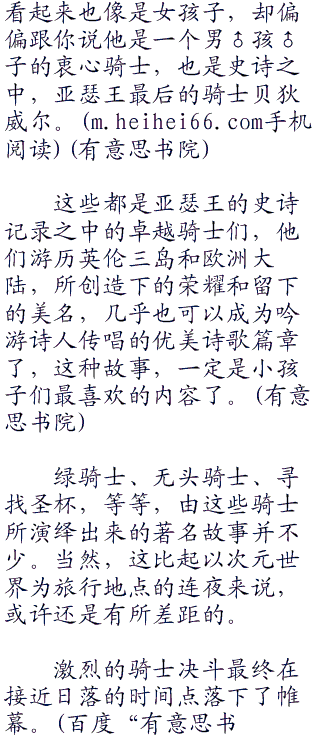 看起来也像是女孩子，却偏
偏跟你说他是一个男♂孩♂
子的衷心骑士，也是史诗之
中，亚瑟王最后的骑士贝狄
威尔。(m.heihei66.com手机
阅读)(有意思书院)
这些都是亚瑟王的史诗
记录之中的卓越骑士们，他
们游历英伦三岛和欧洲大
陆，所创造下的荣耀和留下
的美名，几乎也可以成为吟
游诗人传唱的优美诗歌篇章
了，这种故事，一定是小孩
子们最喜欢的内容了。(有意
思书院)
绿骑士、无头骑士、寻
找圣杯，等等，由这些骑士
所演绎出来的著名故事并不
少。当然，这比起以次元世
界为旅行地点的连夜来说，
或许还是有所差距的。
激烈的骑士决斗最终在
接近日落的时间点落下了帷
幕。(百度“有意思书